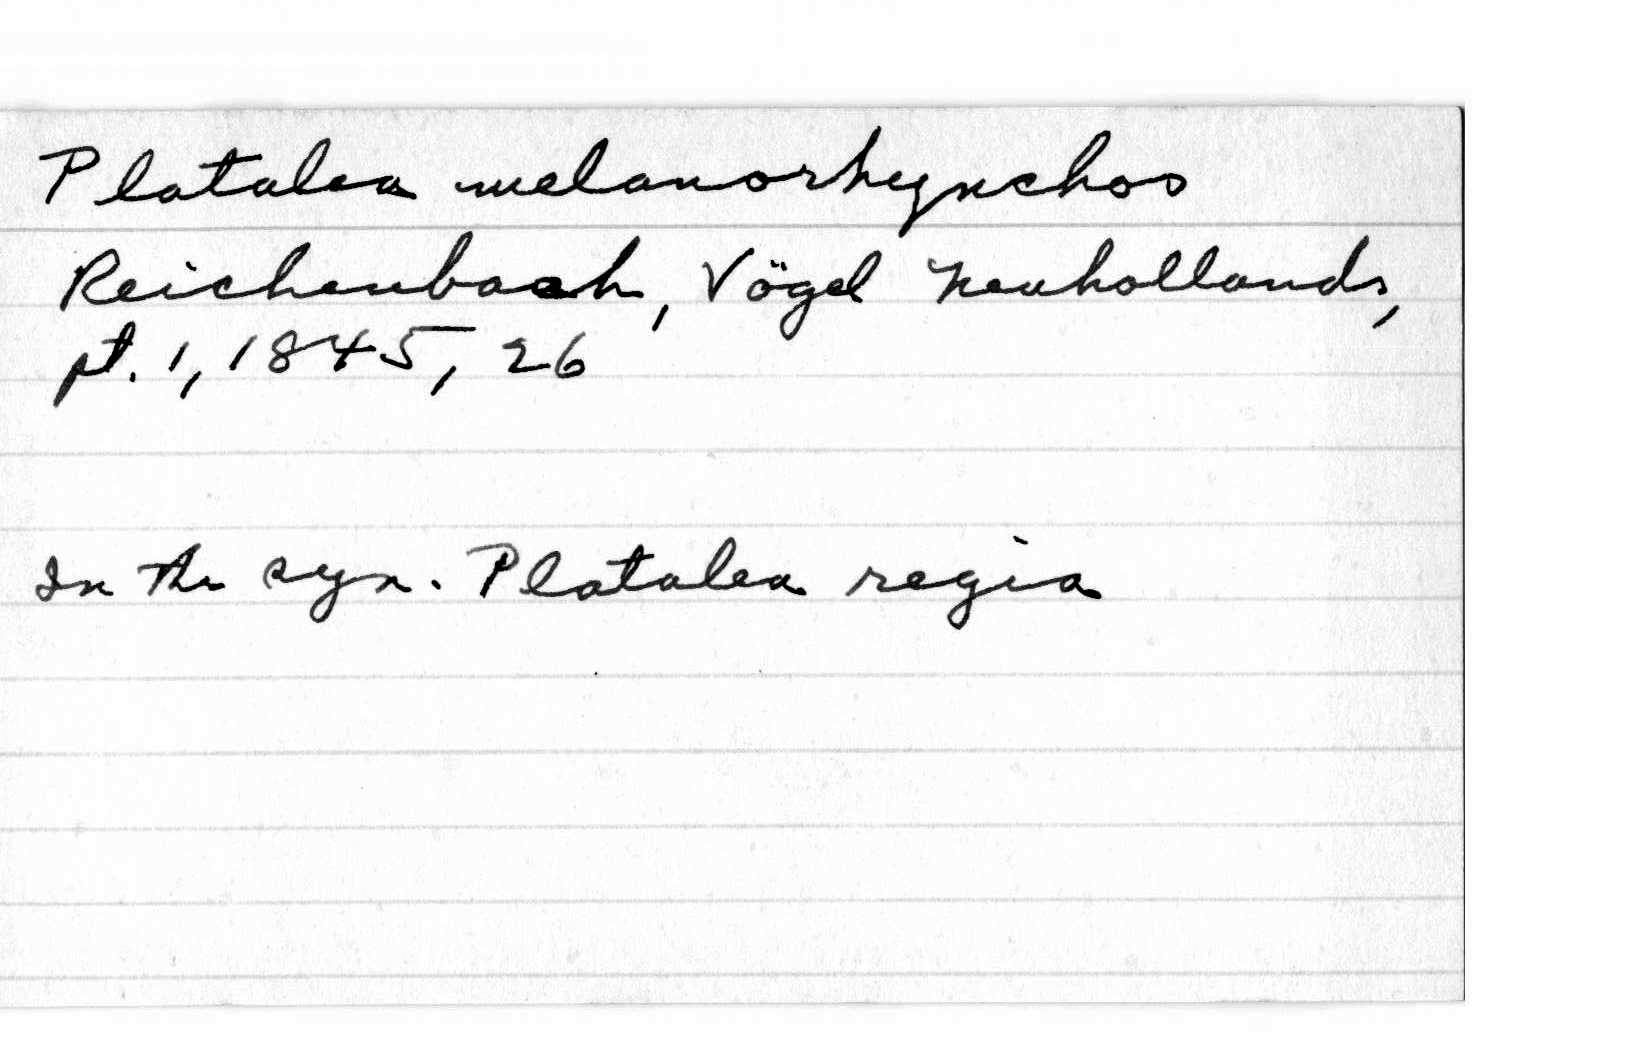 Platalea melanorhynchos
Reichenbach, Vögel Neuhollands,
pt. 1, 1845, 26
In the syn. Platalea regia